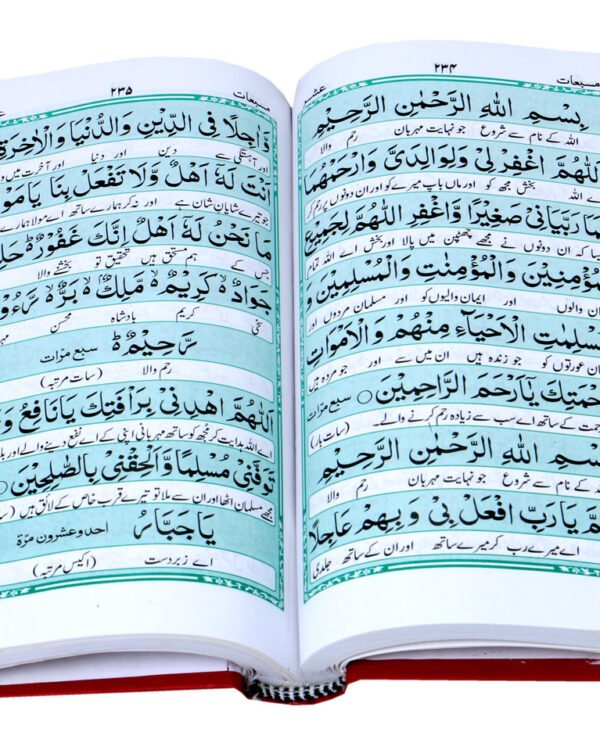 ۲۳۴
مسبعات
بِسْمِ اللهِ الرَّحْمٰنِ الرَّحِيْمِ
الله کے نام سے شروع جو نہایت مہربان رحم والا
اَللّٰهُمَّ اغْفِرْ لِيْ وَلِوَالِدَيَّ وَارْحَمْهُمَا
اے الله بخش مجھ کو اور ماں باپ میرے کو اور ان دونوں پر رحم کر
كَمَا رَبَّيَانِيْ صَغِيْرًا وَّاغْفِرِ اللّٰهُمَّ لِجَمِيْعِ
کہ ان دونوں نے مجھے چھٹپن میں پالا اور بخش اے الله تمام
الْمُؤْمِنِيْنَ وَالْمُؤْمِنٰتِ وَالْمُسْلِمِيْنَ وَ
والوں اور ایمان والیوں کو اور مسلمان مردوں اور
الْمُسْلِمٰتِ الْاَحْيَآءِ مِنْهُمْ وَالْاَمْوَاتِ
عورتوں کو جو زندہ ہیں ان میں سے اور جو مردہ ہیں
بِرَحْمَتِكَ يَآ اَرْحَمَ الرَّاحِمِيْنَ سبع مرات
رحمت کے ساتھ اے سب سے زیادہ رحم کرنے والے۔ (سات بار)
بِسْمِ اللهِ الرَّحْمٰنِ الرَّحِيْمِ
کے نام سے شروع جو نہایت مہربان رحم والا
اَللّٰهُمَّ يَارَبِّ افْعَلْ بِيْ وَبِهِمْ عَاجِلًا
اے میرے رب کر میرے ساتھ اور ان کے ساتھ جلدی
۲۳۵
مسبعات
وَّاٰجِلًا فِي الدِّيْنِ وَالدُّنْيَا وَالْاٰخِرَةِ
اور آہستگی سے دین اور دنیا اور آخرت میں
اَنْتَ لَهٗ اَهْلٌ وَّلَا تَفْعَلْ بِنَا يَا مَوْ
جو تیرے شایان شان ہے اور نہ کر ہمارے ساتھ اے مولا ہمارے
مَا نَحْنُ لَهٗٓ اَهْلٌ اِنَّكَ غَفُوْرٌ حَلِ
جس کے ہم مستحق ہیں تحقیق تو بخشنے والا
جَوَادٌ كَرِيْمٌ مَّلِكٌ بَرٌّ رَّءُوْ
سخی کریم بادشاہ محسن
رَّحِيْمٌ سبع مرات
رحم والا (سات مرتبہ)
اَللّٰهُمَّ اهْدِنِيْ بِرَأْفَتِكَ يَا نَافِعُ وَ
اے الله ہدایت کر مجھ کو ساتھ مہربانی اپنی کے اے نفع دینے والے اور
تَوَفَّنِيْ مُسْلِمًا وَّاَلْحِقْنِيْ بِالصّٰلِحِيْنَ
مجھے مسلمان اٹھا اور ان سے ملا جو تیرے قرب خاص کے لائق ہیں
يَا جَبَّارُ احد وعشرون مرّة
اے زبردست (اکیس مرتبہ)